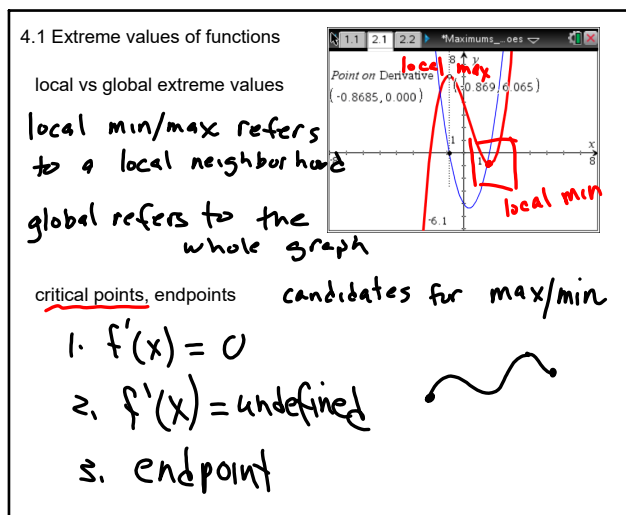 4.1 Extreme values of functions
local vs global extreme values
local min/max refers
to a local neighborhood
global refers to the
whole graph
1.1 2.1 2.2 *Maximums_...oes
8 y
local max
Point on Derivative
(-0.8685, 0.000) (-0.869, 6.065)
1 x
1 8
local min
-6.1
critical points, endpoints candidates for max/min
1. f'(x) = 0
2. f'(x) = undefined
3. endpoint